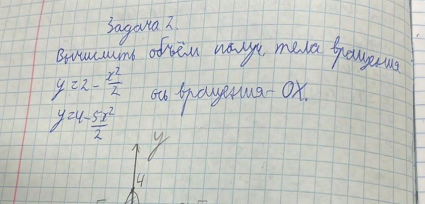 Задача 2.
Вычислить объём получ тела вращения
y = 2 - x²/2
ось вращения - OX.
y = 4 - 5x²/2
y
4